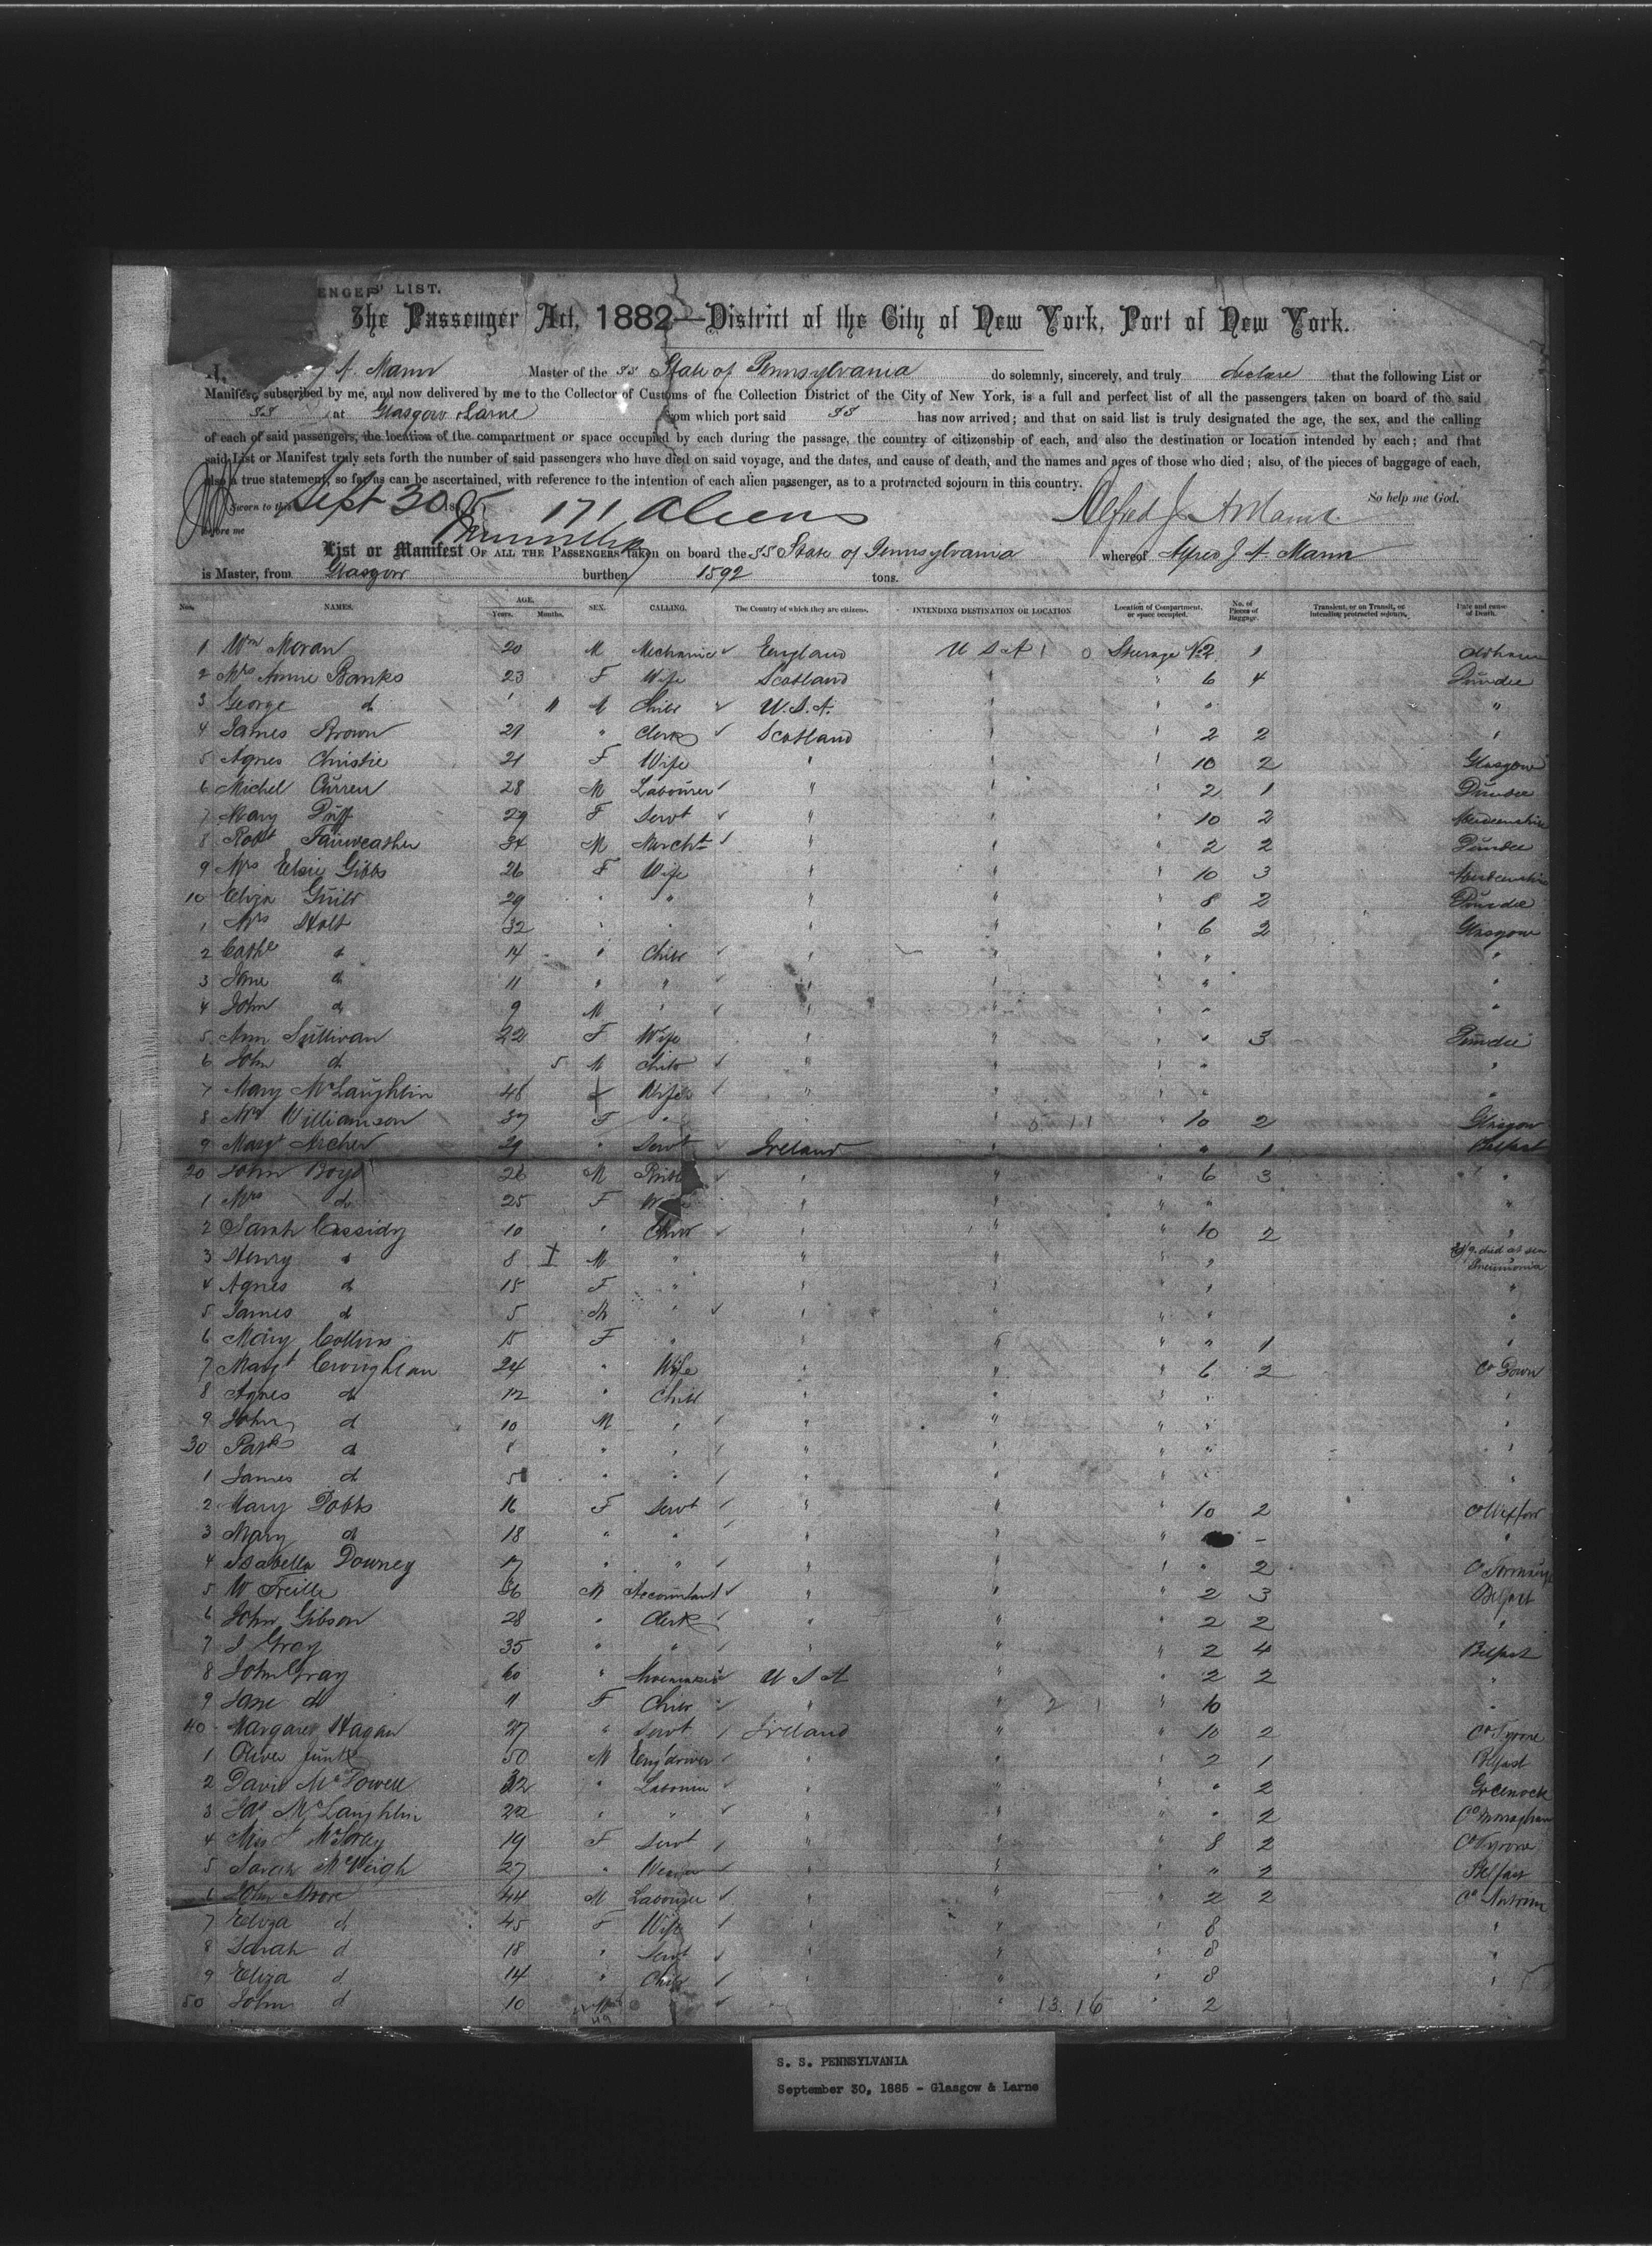 ENGERS' LIST.
The Passenger Act, 1882—District of the City of New York, Port of New York.
I, J A. Mann Master of the SS State of Pennsylvania do solemnly, sincerely, and truly declare that the following List or
Manifest, subscribed by me, and now delivered by me to the Collector of Customs of the Collection District of the City of New York, is a full and perfect list of all the passengers taken on board of the said
SS at Glasgow & Larne from which port said SS has now arrived; and that on said list is truly designated the age, the sex, and the calling
of each of said passengers, the location of the compartment or space occupied by each during the passage, the country of citizenship of each, and also the destination or location intended by each; and that
said List or Manifest truly sets forth the number of said passengers who have died on said voyage, and the dates, and cause of death, and the names and ages of those who died; also, of the pieces of baggage of each,
also a true statement, so far as can be ascertained, with reference to the intention of each alien passenger, as to a protracted sojourn in this country.
So help me God.
Sworn to this Sept 30 1885 171 Aliens Alfred J A Mann
before me
List or Manifest OF ALL THE PASSENGERS taken on board the SS State of Pennsylvania whereof Alfred J A. Mann
is Master, from Glasgow burthen 1592 tons.
Nos. NAMES. AGE. Years. Months. SEX. CALLING. The Country of which they are citizens. INTENDING DESTINATION OR LOCATION Location of Compartment, or space occupied. No. of Pieces of Baggage. Transient, or on Transit, or intending protracted sojourn. Date and cause of Death.
1 Wm Moran 20 M Mechanic England U S A Steerage No 2 1
2 Mrs Annie Banks 23 F Wife Scotland " " 6 4 Dundee
3 George do 11 M Child U.S.A. " " " "
4 James Brown 29 " Clerk Scotland " " 2 2 "
5 Agnes Christie 21 F Wife " " " 10 2 Glasgow
6 Michel Curren 28 M Labourer " " " 2 1 Dundee
7 Mary Duff 29 F Servt " " " 10 2 Aberdeenshire
8 Robt Fairweather 34 M Mercht " " " 2 2 Dundee
9 Mrs Elsie Gibbs 26 F Wife " " " 10 3 Aberdeenshire
10 Eliza Guild 29 " " " " " 8 2 Dundee
1 Mrs Holt 32 " " " " " 6 2 Glasgow
2 Cathe do 14 " Child " " " " "
3 Jane do 11 " " " " " " "
4 John do 9 M " " " " " "
5 Ann Sullivan 22 F Wife " " " " 3 Dundee
6 John do 5 M Child " " " " "
7 Mary McLaughlin 48 Wife " " " " "
8 Mrs Williamson 37 F " " " " 10 2 Glasgow
9 Margt Archer 29 " Servt Ireland " " " 1 Belfast
20 John Boyd 26 M " " " 6 3 "
1 Mrs do 25 F " " " " "
2 Sarah Cassidy 10 " Child " " " 10 2 "
3 Henry do 8 M " " " " " died at sea Pneumonia
4 Agnes do 15 F " " " " " "
5 James do 5 M " " " " " "
6 Mary Collins 15 F " " " " " 1 "
7 Margt Croughan 24 " Wife " " " 6 2 Co Down
8 Agnes do 12 " Child " " " " "
9 John do 10 M " " " " " "
30 Patk do 8 " " " " " " "
1 James do 5 " " " " " " "
2 Mary Dobbs 16 F Servt " " " 10 2
3 Mary do 18 " " " " " - "
4 Isabella Downey 17 " " " " " " 2
5 W Freille 36 M Accountant " " " 2 3 Belfast
6 John Gibson 28 " Clerk " " " 2 2 "
7 J Gray 35 " " " " " 2 4 Belfast
8 John Gray 60 " Shoemaker U S A " 2 2 "
9 Jane do 11 F Child " " " 10 "
40 Margaret Hagan 27 " Servt Ireland " " 10 2 Co Tyrone
1 Oliver Junk 50 M Engdriver " " " 2 1 Belfast
2 David McDowell 32 " Labourer " " " " 2 Greenock
3 Jas McLaughlin 22 " " " " " " 2 Co Monaghan
4 Miss 19 F Servt " " " 8 2 Co Tyrone
5 Sarah McVeigh 27 " " " " " 2 Belfast
6 John Moore 44 M Labourer " " " 2 2 Co Antrim
7 Eliza do 45 F Wife " " " 8 "
8 Sarah d 18 " Servt " " " 8 "
9 Eliza d 14 " Child " " " 8 "
50 John d 10 " " 13.16 " 2
S. S. PENNSYLVANIA
September 30, 1885 - Glasgow & Larne